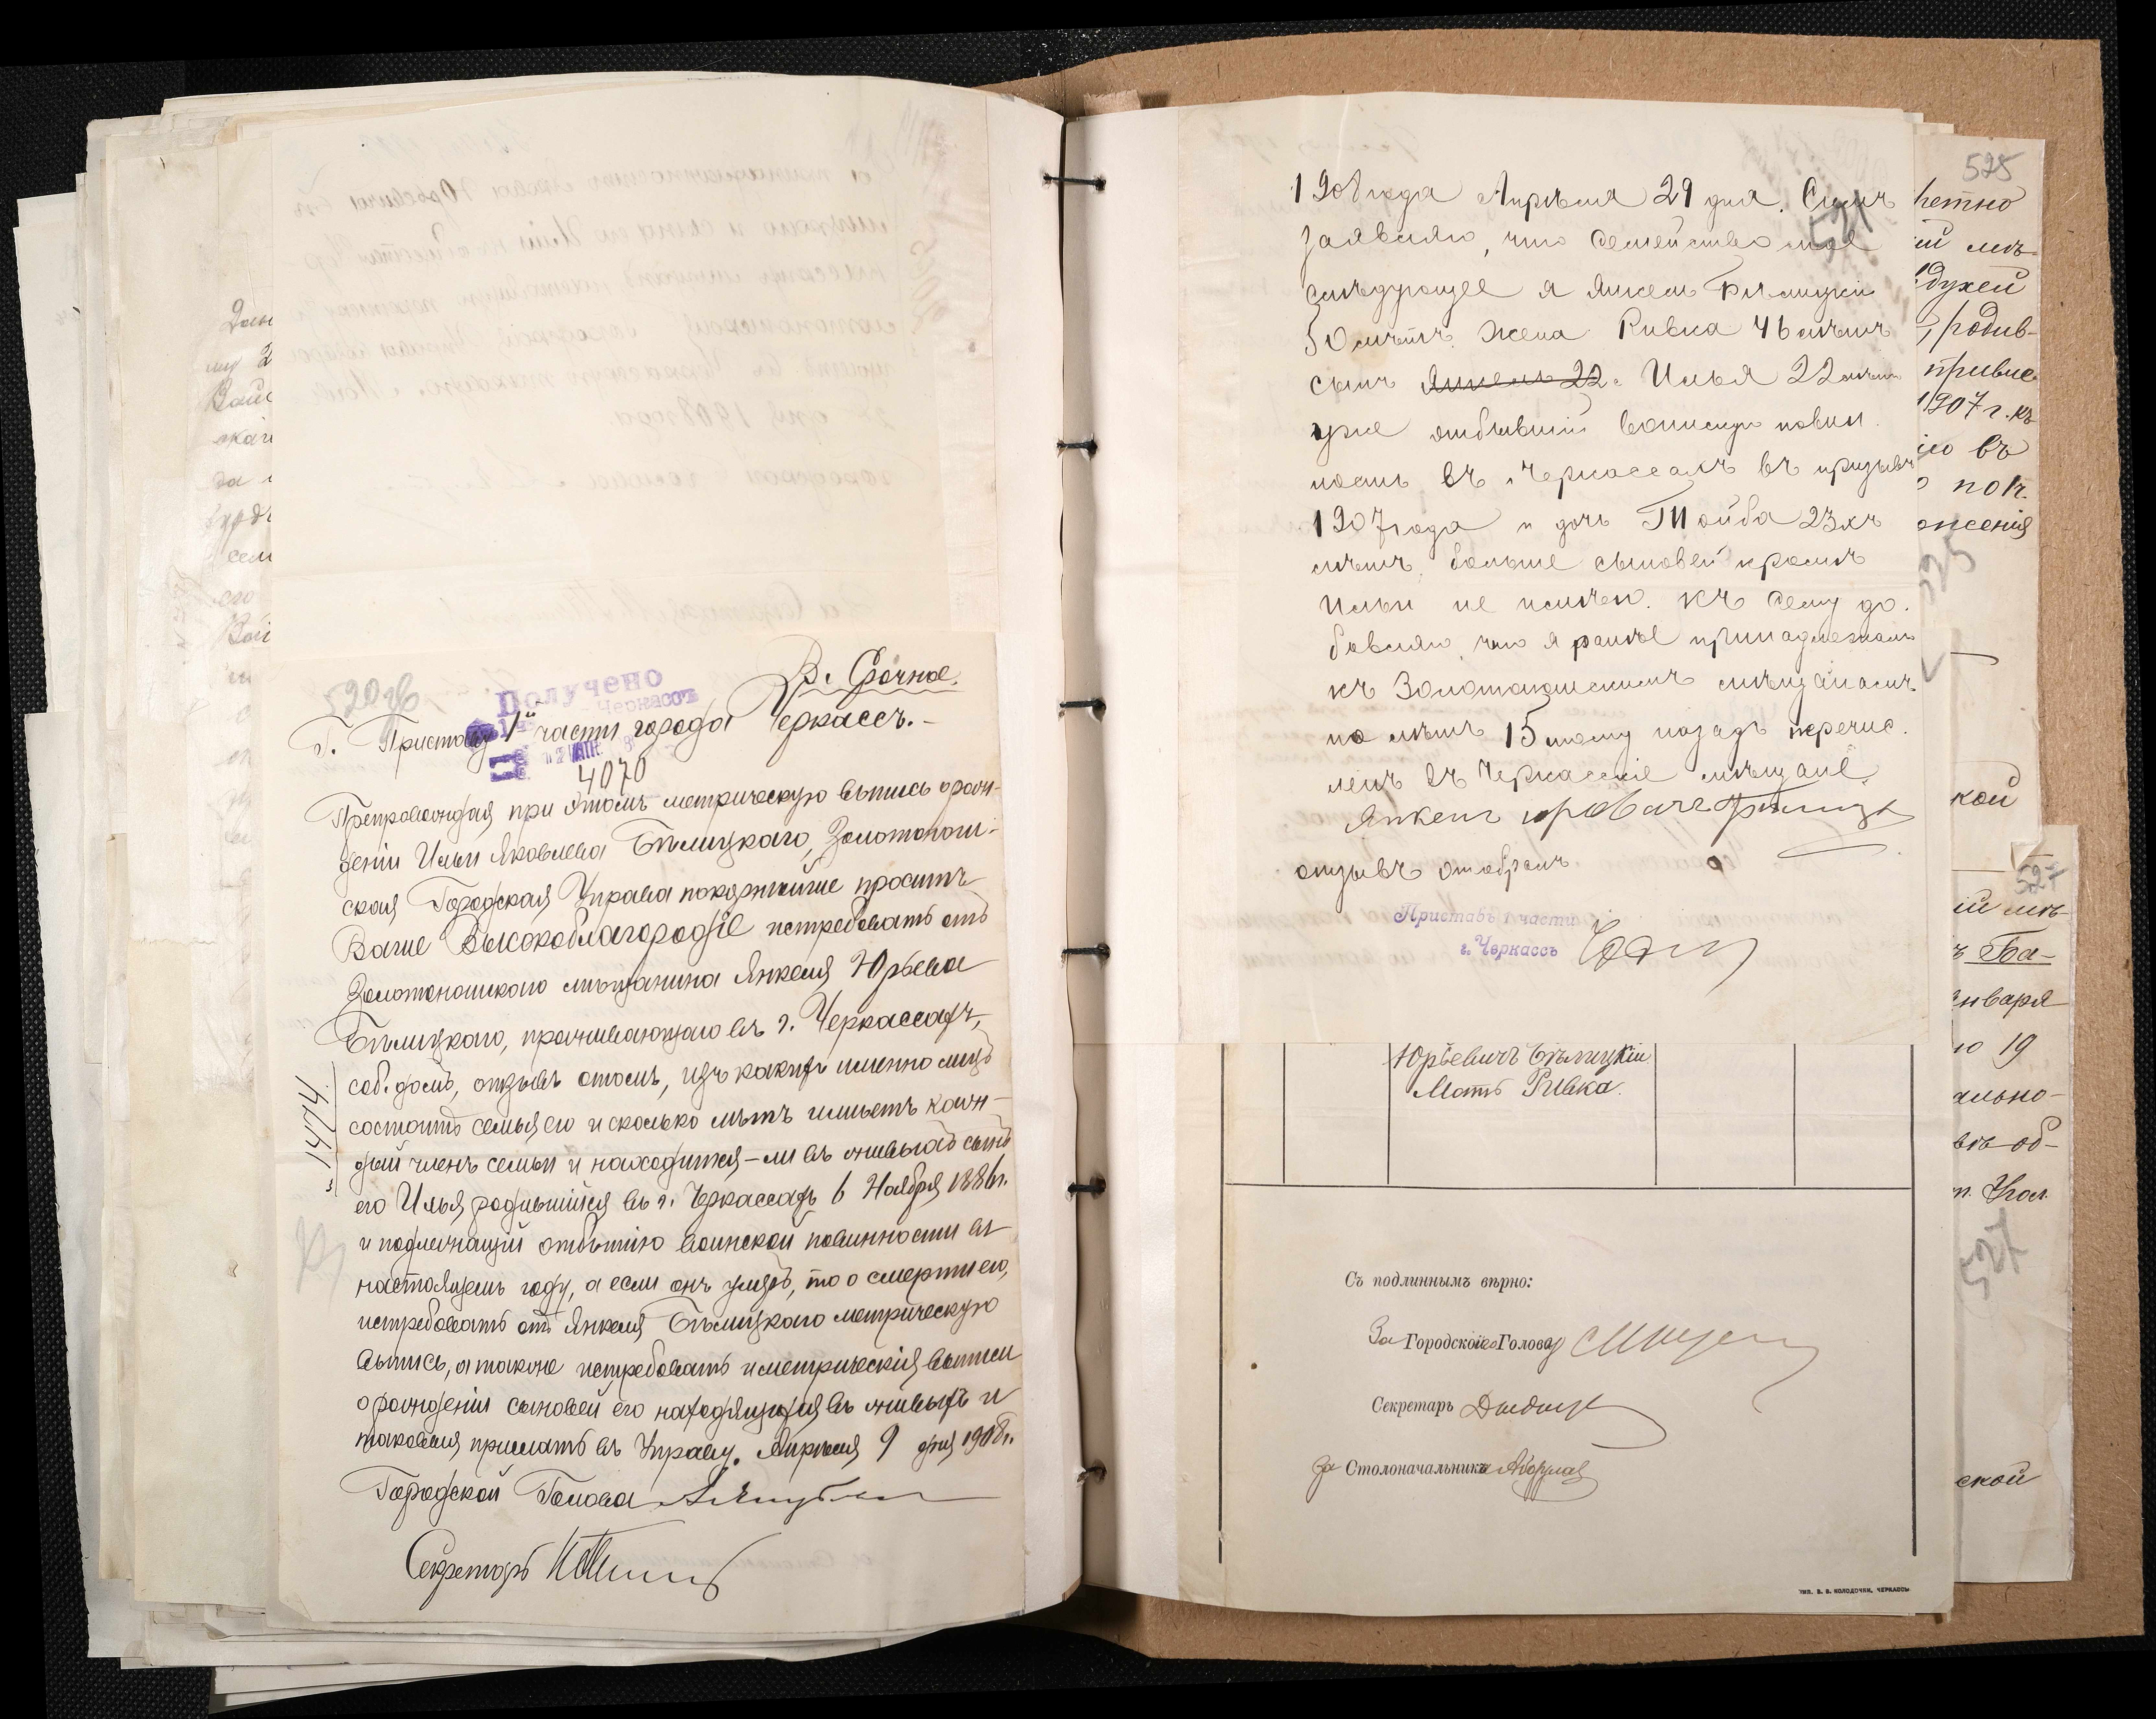 520 об
В. Срочное.
Получено
Черкассъ
Г. Приставу 1й части города Черкассъ.-
4070
№ 1474.
Препровождая при этомъ метрическую выпись о рож-
деніи Ильи Яковлева Бѣлицкаго, Золотонош-
ская Городская Управа покорнѣйше проситъ
Ваше Высокоблагородіе истребовать отъ
Золотоношскаго мѣщанина Янкеля Юрьева
Бѣлицкаго, проживающаго въ г. Черкассахъ,
соб. домъ, отзывъ о томъ, изъ какихъ именно лицъ
состоитъ семья его и сколько лѣтъ имѣетъ каж-
дый членъ семьи и находится-ли въ живыхъ сынъ
его Илья, родившійся въ г. Черкассахъ 6 Ноября 1886 г.
и подлежащій отбытію воинской повинности въ
настоящемъ году, а если онъ умеръ, то о смерти его,
истребовать отъ Янкеля Бѣлицкаго метрическую
выпись, а также истребовать и метрическія выписи
о рожденіи сыновей его находящихся въ живыхъ и
таковыя прислать въ Управу. Апрѣля 9 дня 1908 г.
Городской Голова
Секретарь
521
1908 года Апрѣля 29 дня. Симъ
заявляю, что семейство мое
слѣдующее я Янкель Бѣлицкій
50 лѣтъ. Жена Ривка 46 лѣтъ
сынъ Янкель 22. Илья 22 лѣтъ
уже отбывшій воинскую повин.
ность въ г. Черкассахъ въ призывъ
1907 года и дочь Тойба 23хъ
лѣтъ. больше сыновей кромѣ
Ильи не имѣю. Къ сему до.
бавляю, что я ранѣе принадлежалъ
къ Золотоношскимъ мѣщанамъ
но лѣтъ 15 тому назадъ перечис.
ленъ въ Черкасскіе мѣщане.
Янкель Юровичъ Бѣлицкі
отзывъ отобралъ
Приставъ 1 части
г. Черкассъ
Юрьевичъ Бѣлицкій
Мать Ривка.
Съ подлиннымъ вѣрно:
За Городского Голову
Секретарь
За Столоначальника
ТИП. В. В. КОЛОДОЧКИ, ЧЕРКАССЫ
525
ій мѣ-
духей
, родив-
привле-
1907 г. къ
въ
о пов.
оженія
525
кой
527
ій мѣ-
ъ Ба-
Января
ю 19
ально-
въ об-
527
ской